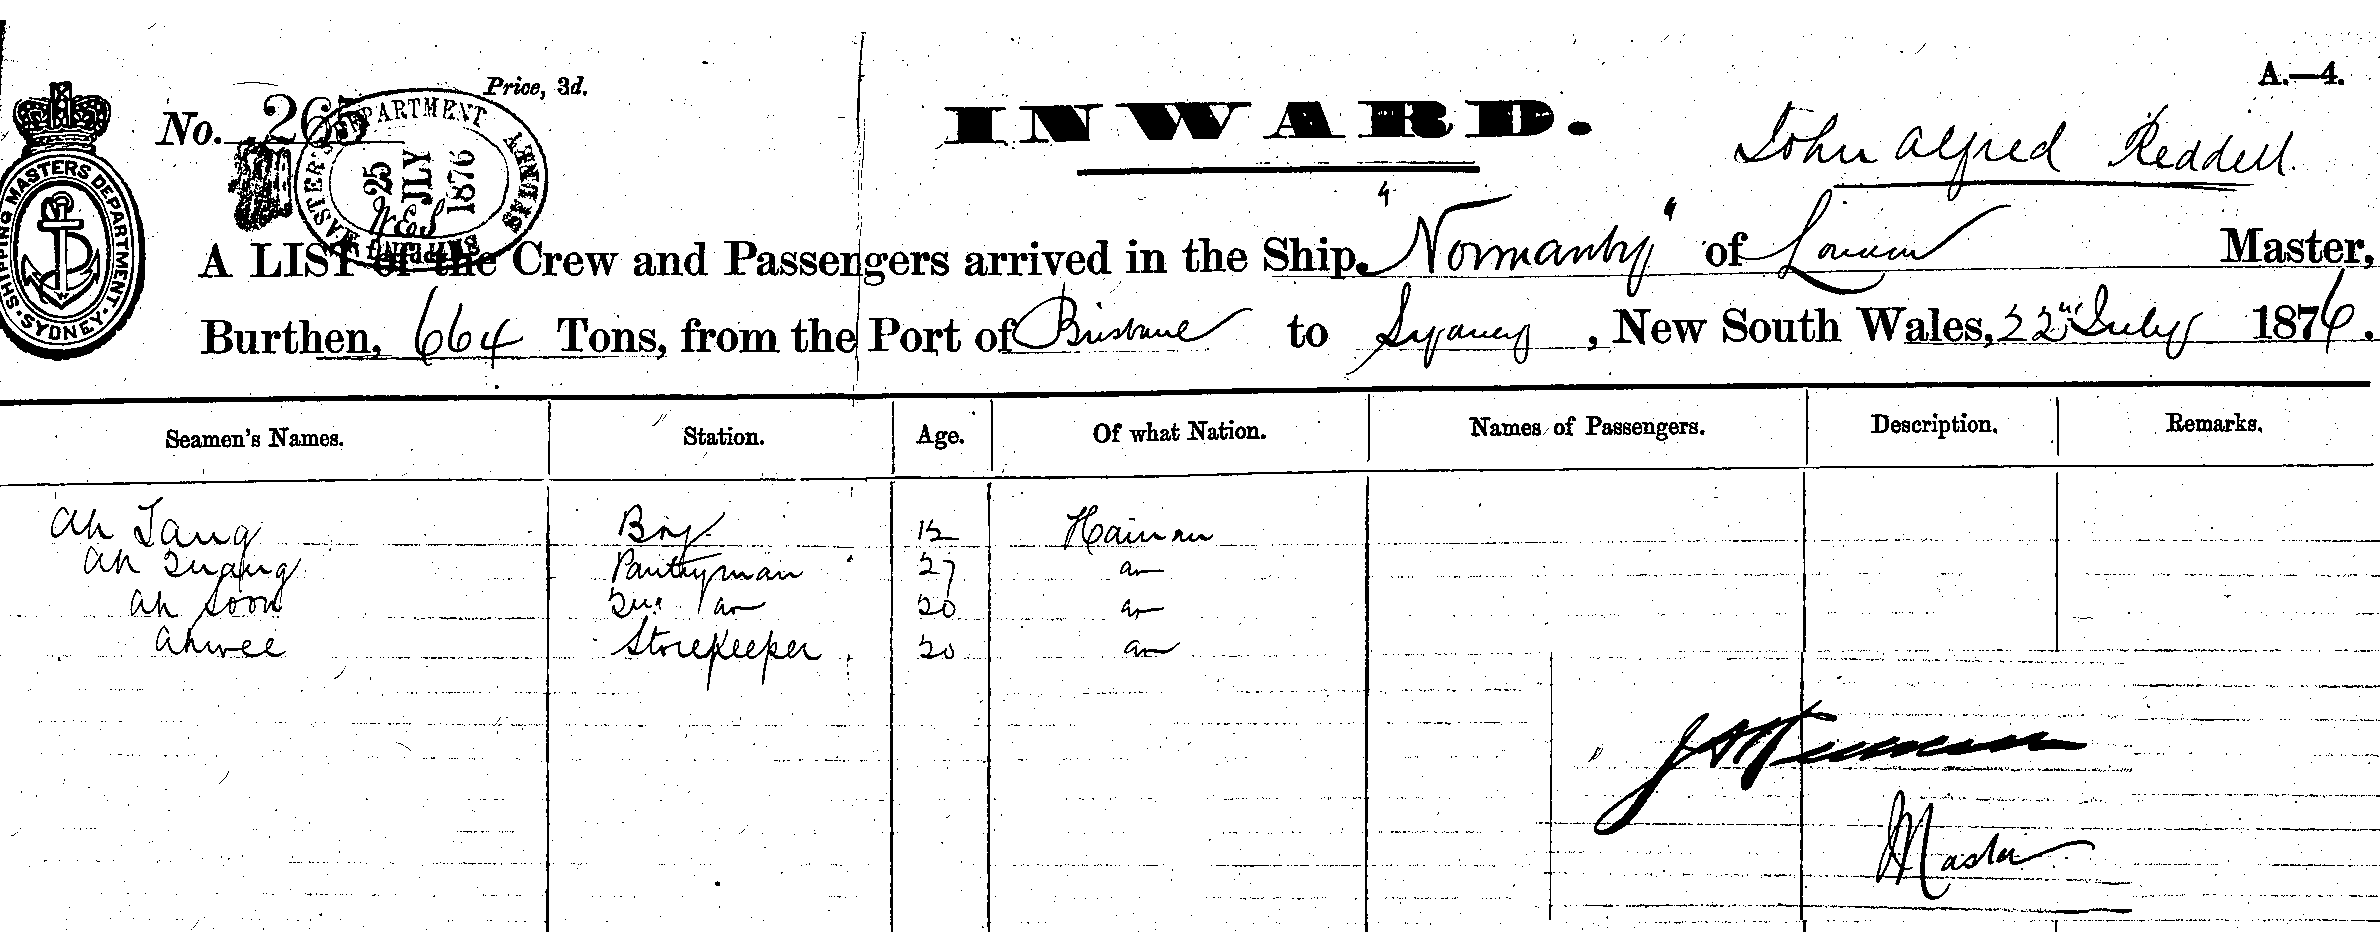 Price, 3d.
A.—4.
No. 265
INWARD.
John Alfred Reddell
SHIPPING MASTERS DEPARTMENT
SYDNEY
SHIPPING MASTER'S DEPARTMENT SYDNEY
25 JLY 1876
A LIST of the Crew and Passengers arrived in the Ship "Normanby" of London Master,
Burthen, 664 Tons, from the Port of Brisbane to Sydney, New South Wales, 22nd July 1876.
Seamen's Names. Station. Age. Of what Nation. Names of Passengers. Description. Remarks.
Ah Tang Boy Hainan
Ah Pantryman 27 do
Ah Soon do 20 do
Ahwee Storekeeper 20 do
Master